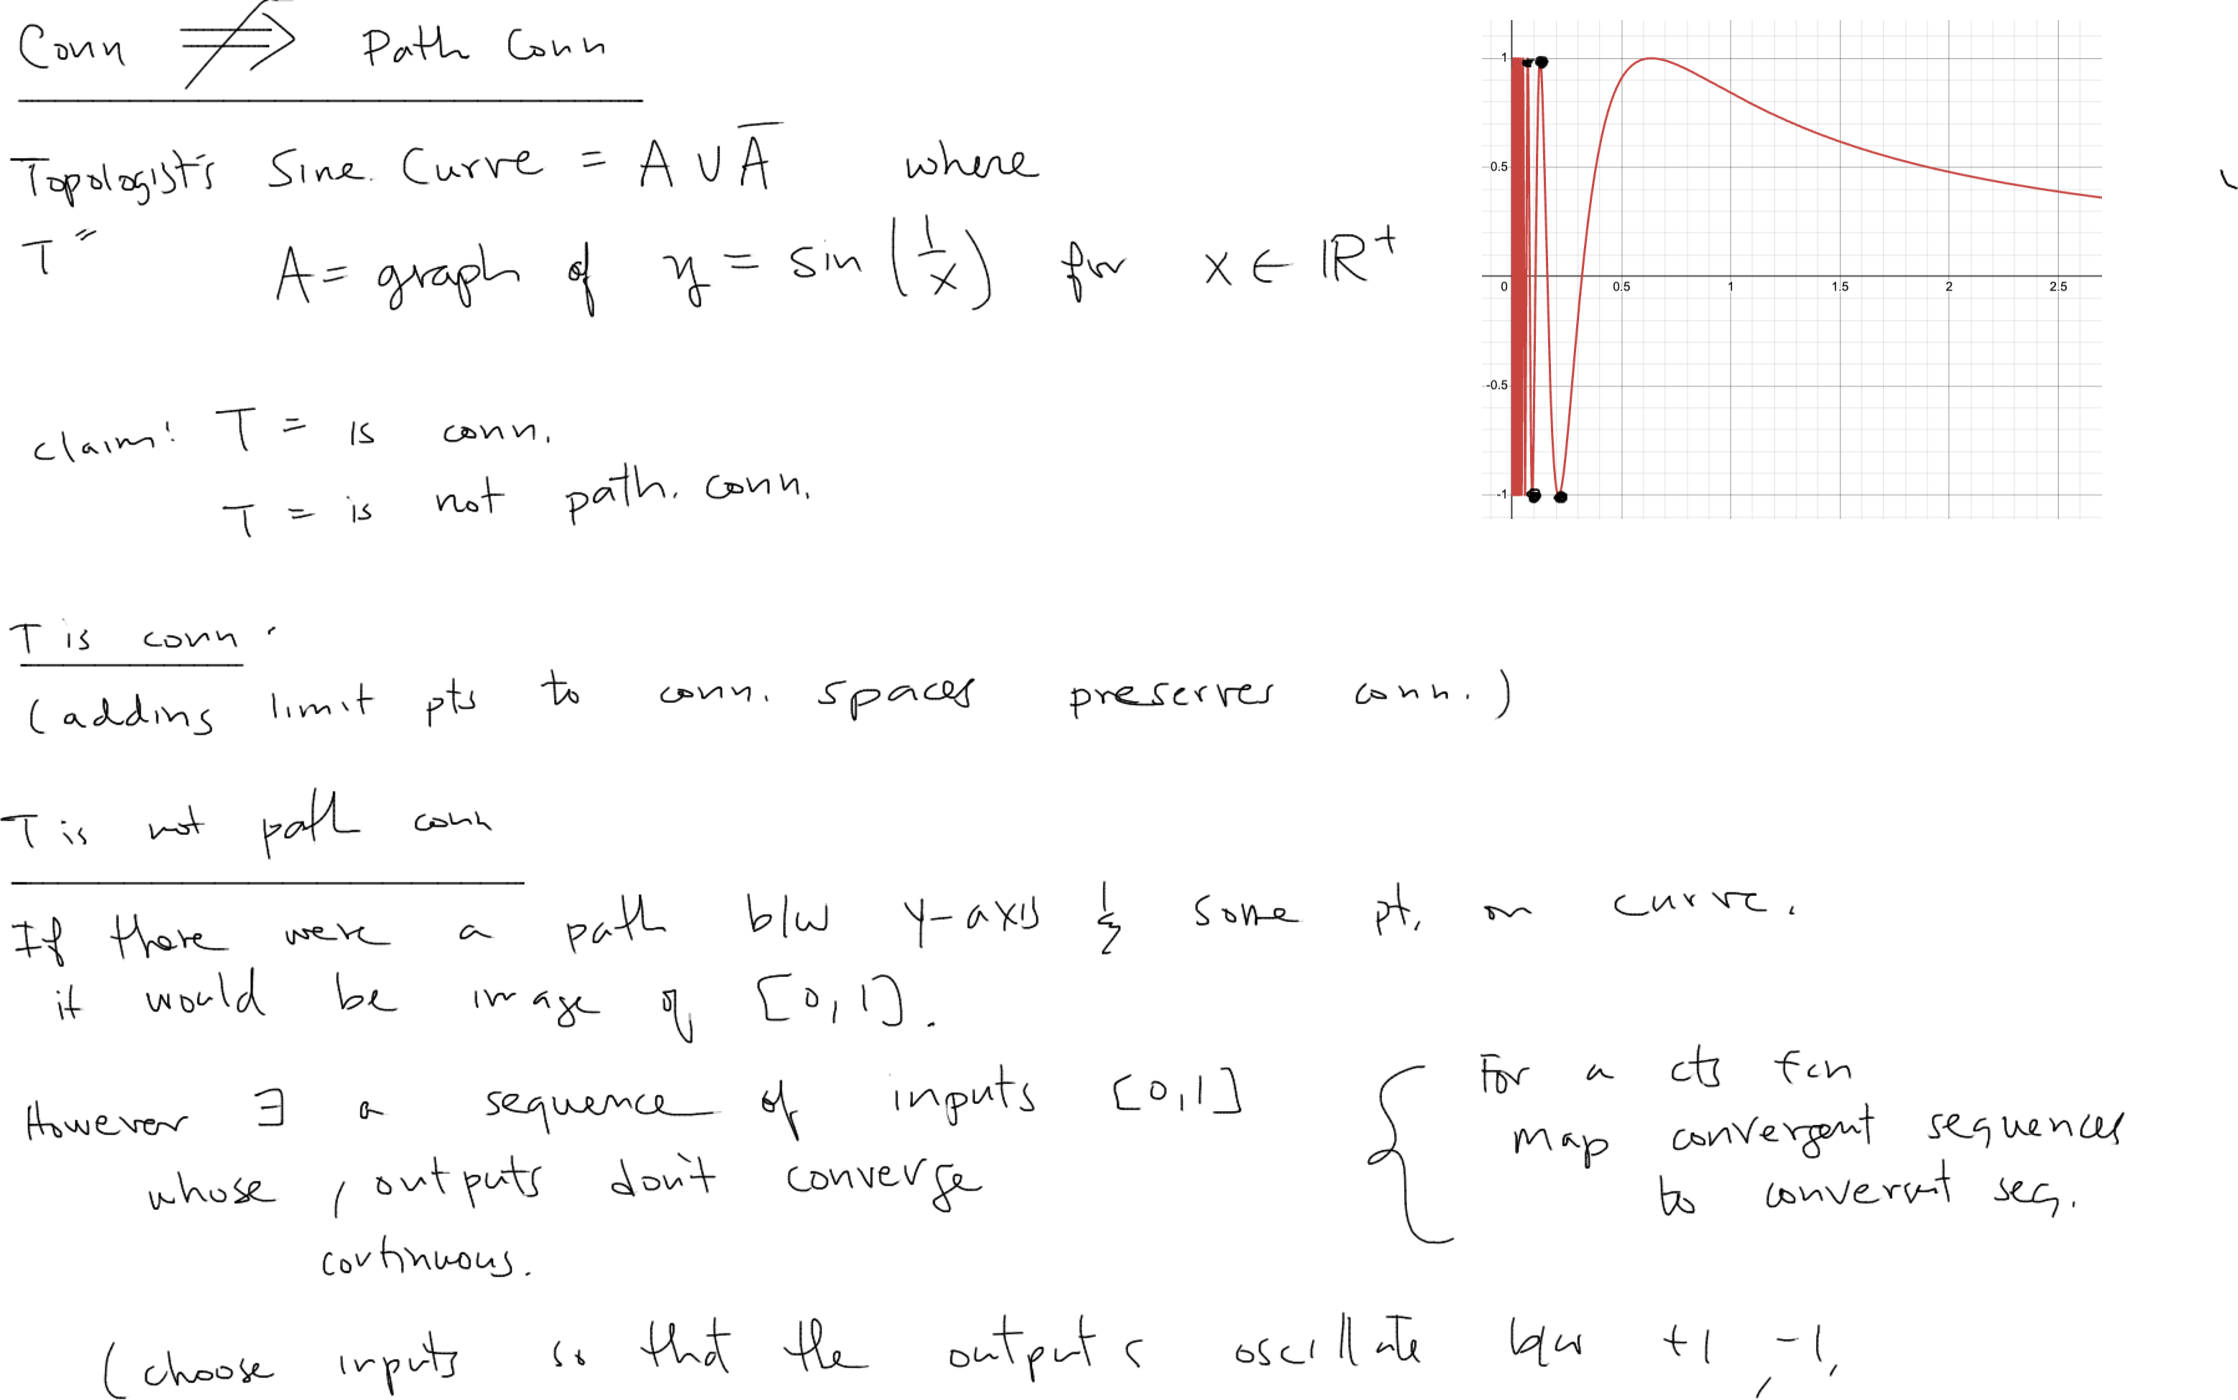 Conn ⇏ Path Conn
Topologist's Sine. Curve = A ∪ A̅ where
T =
A = graph of y = sin (1/x) for x ∈ ℝ⁺
1
0.5
0 0.5 1 1.5 2 2.5
-0.5
-1
claim: T = is conn.
T = is not path. conn.
T is conn.
(adding limit pts to conn. spaces preserves conn.)
T is not path conn
If there were a path b/w y-axis & some pt. on curve.
it would be image of [0,1].
However ∃ a sequence of inputs [0,1]
whose outputs don't converge
continuous.
{ For a cts fcn
map convergent sequences
to convergent seq.
(choose inputs so that the outputs oscillate b/w +1, -1,